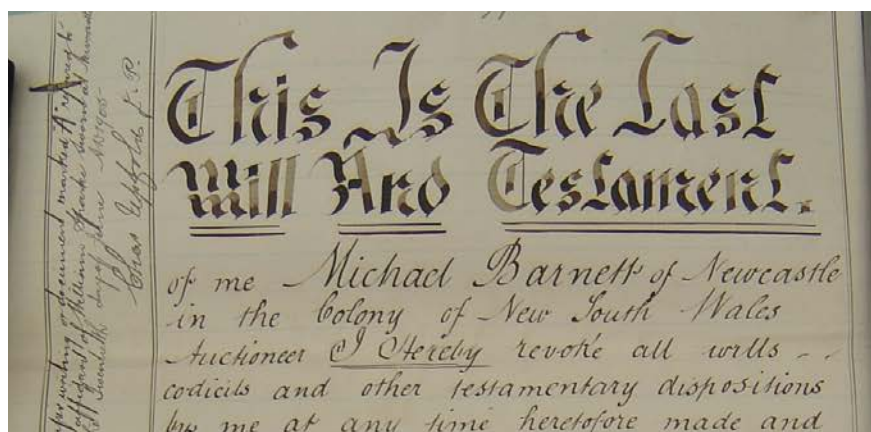 This Is The Last
Will And Testament.
of me Michael Barnett of Newcastle
in the Colony of New South Wales
Auctioneer I Hereby revoke all wills
codicils and other testamentary dispositions
by me at any time heretofore made and
writing or document marked "A" referred to
affidavit of William Sparke sworn at Newcastle
day of June AD 1905
J. P.